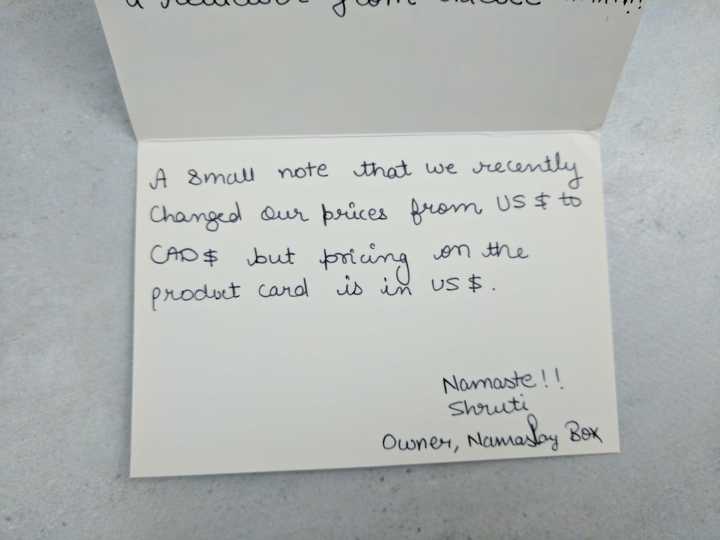 from
A small note that we recently
Changed our prices from US $ to
CAD $ but pricing on the
product card is in US $.
Namaste!!
Shruti
Owner, Namaslay Box